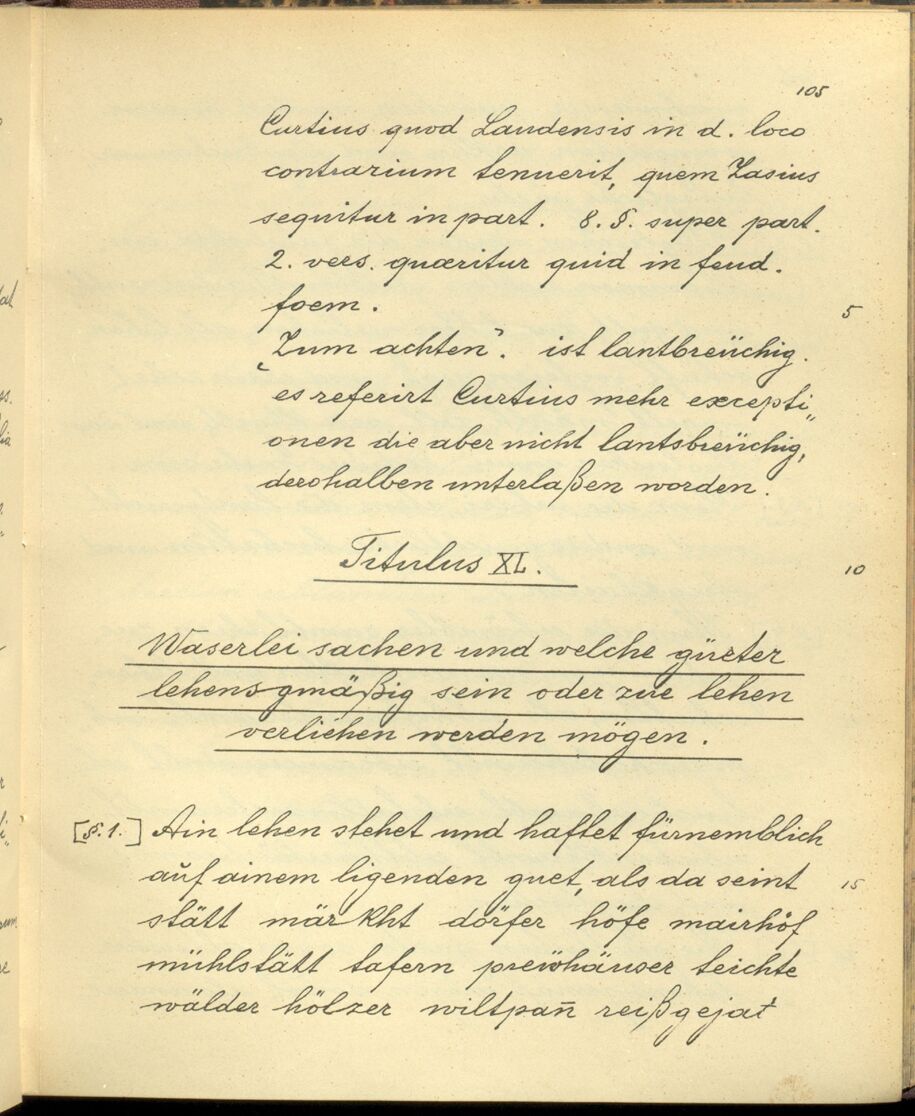 105
Curtius quod Laudensis in d. loco
contrarium tenuerit, quem Zasius
sequitur in part. 8. §. super part.
2. vers. quæritur quid in feud.
foem.
5
„Zum achten“. ist lantbreüchig.
es referirt Curtius mehr excepti„
onen die aber nicht lantsbreüchig,
derohalben unterlaßen worden.
Titulus XL.
10
Waserlei sachen und welche güeter
lehensgmäßig sein oder zue lehen
verliehen werden mögen.
[§. 1.] Ain lehen stehet und haftet fürnemblich
auf ainem ligenden guet, als da seint
15
stätt märkht dörfer höfe mairhöf
mühlstätt tafern preüwhäuser teichte
wälder hölzer wiltpan̄ reißgejat